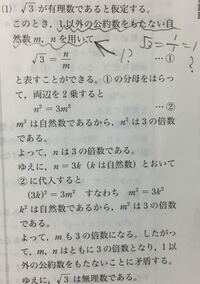 (1) √3 が有理数であると仮定する。
このとき, 1以外の公約数をもたない自
然数 m, n を用いて,
√3 = n/m ……①
と表すことができる。①の分母をはらっ
て, 両辺を2乗すると
n² = 3m² ……②
m² は自然数であるから, n² は3の倍数
である。
よって, n は3の倍数である。
ゆえに, n = 3k (k は自然数) とおいて
②に代入すると
(3k)² = 3m² すなわち m² = 3k²
k² は自然数であるから, m² は3の倍数
である。
よって, m も3の倍数になる。したがっ
て, m, n はともに3の倍数となり, 1以
外の公約数をもたないことに矛盾する。
ゆえに, √3 は無理数である。
1?
= 1/1 = 1
?